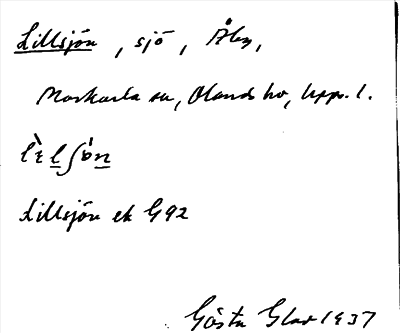 Lillsjön, sjö, Åby,
Markarla sn, Olands hd, Upps. l.
Lillsjön ek G 92
Gösta Glad 1937